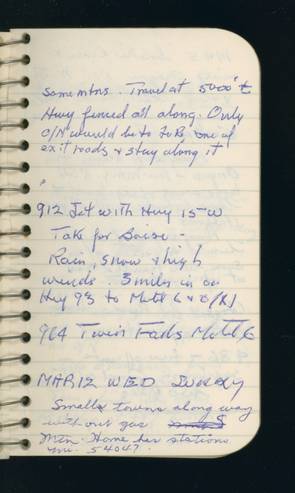 Some mtns. Travel at 5000'±
Hwy fenced all along. Only
O/N would be to take one of
exit roads & stay along it
912 Jct with Hwy 15-W
Take for Boise -
Rain, snow & high
winds. 3 miles in on
Hwy 93 to Motel 6 & O/N
964 Twin Falls Motel 6
MAR 12 WED
Small towns along way
without gas
Mtn. Home has stations
54047.